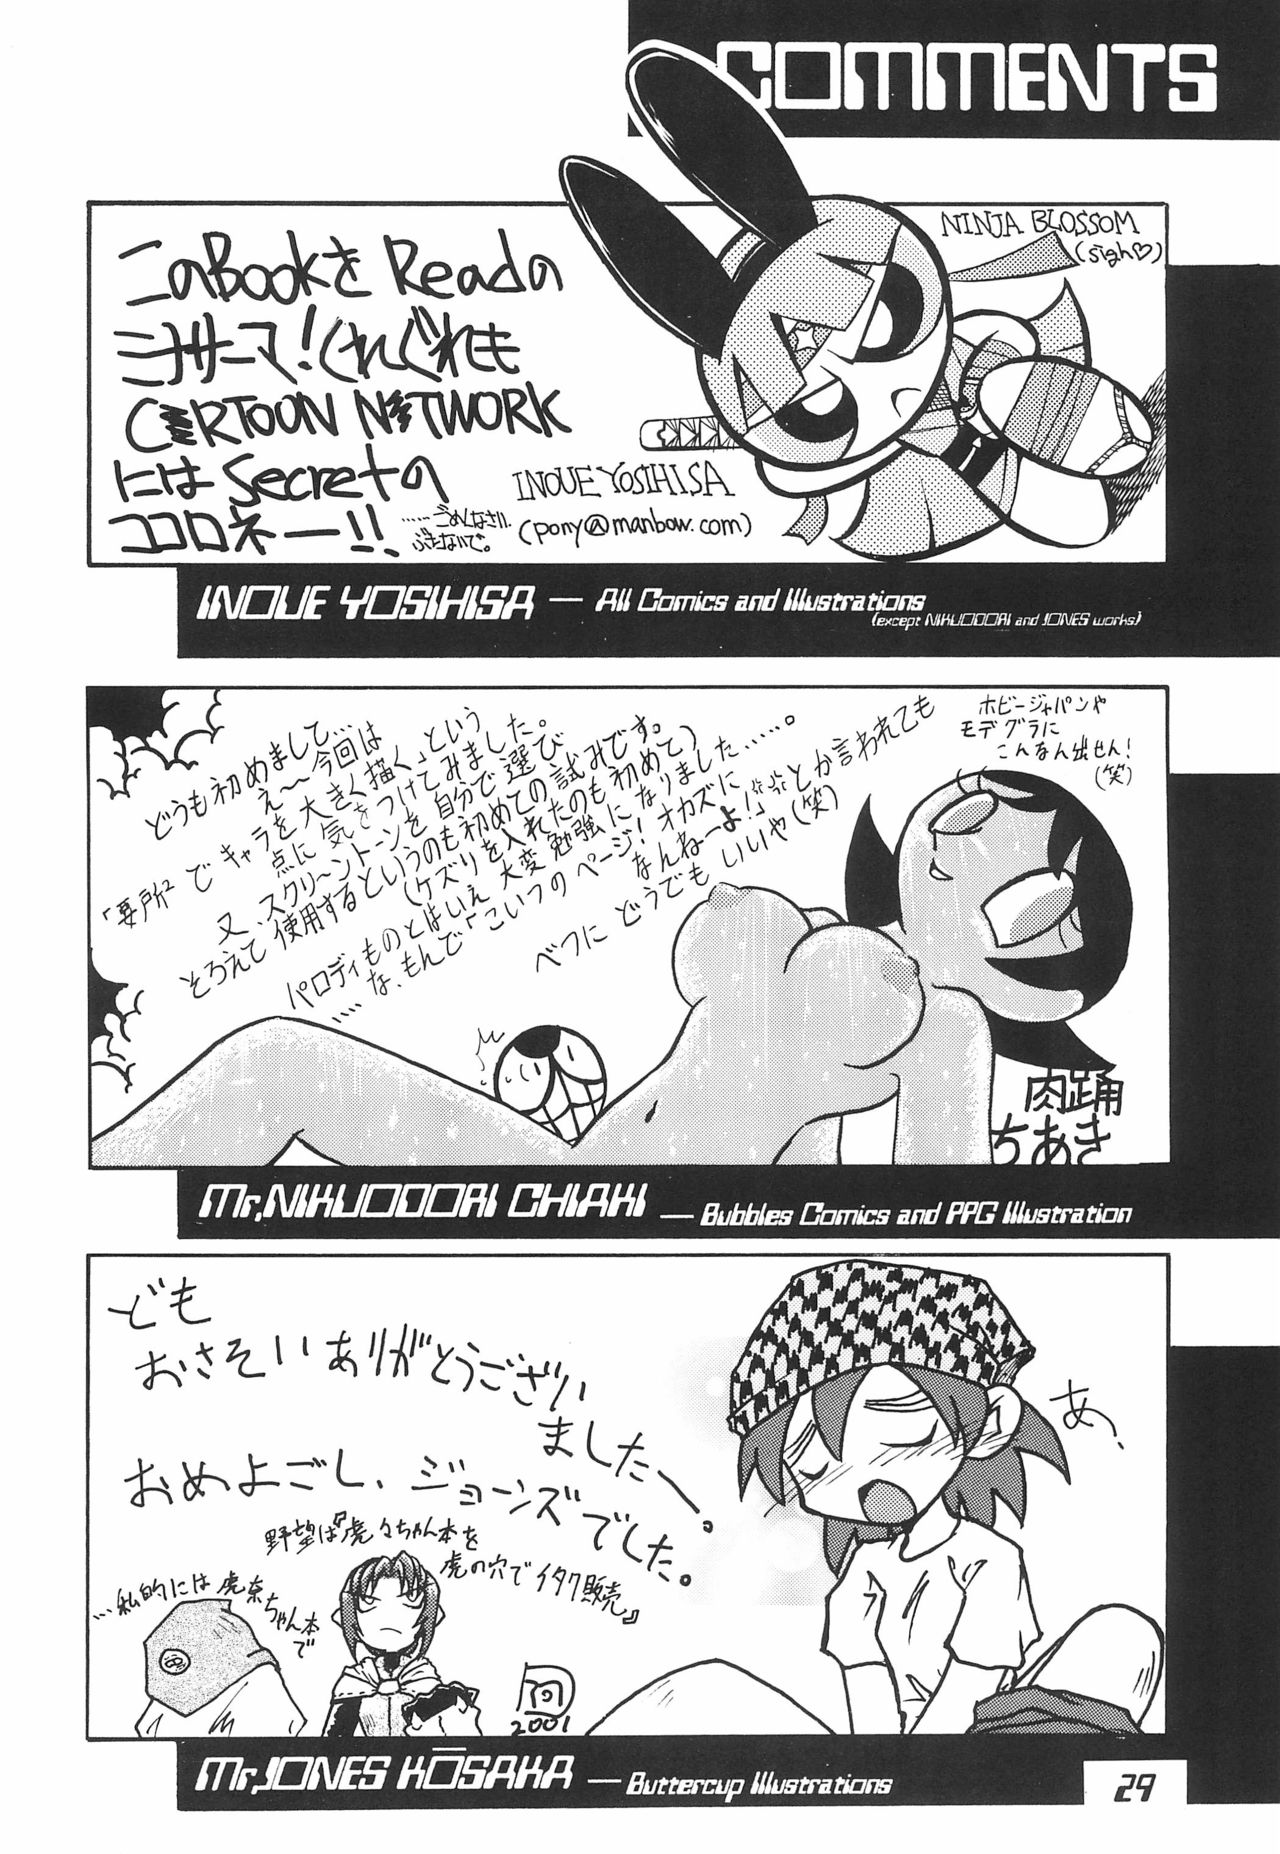 COMMENTS
NINJA BLOSSOM
(sigh♡)
このBookをReadの
ミナサーマ!くれぐれも
C RTOON N TWORK
にはSecretの
ココロネー!!
……ごめんなさい。
ぶたないで。
INOUE YOSIHISA
(pony@manbow.com)
INOUE YOSIHISA — All Comics and Illustrations
(except NIKUODORI and JONES works)
どうも初めまして…
え〜今回は
「要所²でキャラを大きく描く」という
点に気をつけてみました。
又、スクリ〜ントーンを自分で選び
そろえて使用するというのも初めての試みです。
(ケズリを入れたのも初めて)
パロディものとはいえ大変勉強になりました……。
……な、もんで「こいつのページ!オカズに
なんねーよ!!」とか言われても
べつにどうでもいいや(笑)
ホビージャパンや
モデグラに
こんなん出せん!
(笑)
肉踊
ちあき
Mr.NIKUODORI CHIAKI — Bubbles Comics and PPG Illustration
ども
おさそいありがとうござい
ましたー。
おめよごし、ジョーンズでした。
野望は『虎々ちゃん本を
虎の穴でイタク販売』
…私的には虎奈ちゃん本で
あ、
2001
Mr.JONES KŌSAKA — Buttercup Illustrations
29